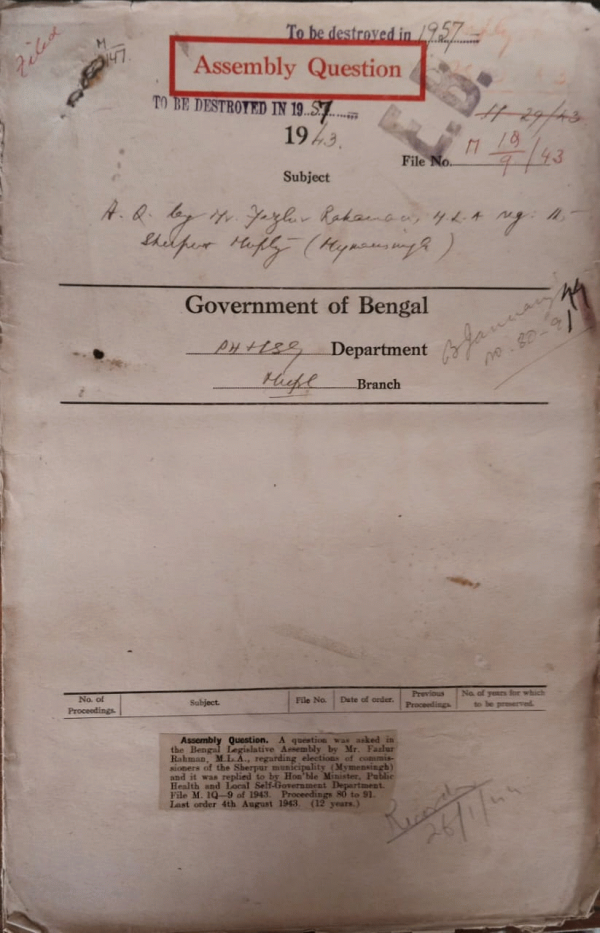 Filed
M
147
To be destroyed in 1957
Assembly Question
TO BE DESTROYED IN 1957
E.B.
1943.
M 29/43
File No. M 1Q/9/43
Subject
A. Q. by Mr. Fazlur Rahaman, M.L.A. reg:
Sherpur Muply (Mymensingh)
Government of Bengal
PH & LSG Department
Mupl Branch
B January 44
no. 80-91
No. of Proceedings.
Subject.
File No.
Date of order.
Previous Proceedings.
No. of years for which to be preserved.
Assembly Question. A question was asked in
the Bengal Legislative Assembly by Mr. Fazlur
Rahman, M.L.A., regarding elections of commis-
sioners of the Sherpur municipality (Mymensingh)
and it was replied to by Hon'ble Minister, Public
Health and Local Self-Government Department.
File M. 1Q—9 of 1943. Proceedings 80 to 91.
Last order 4th August 1943. (12 years.)
Recorded
26/1/44